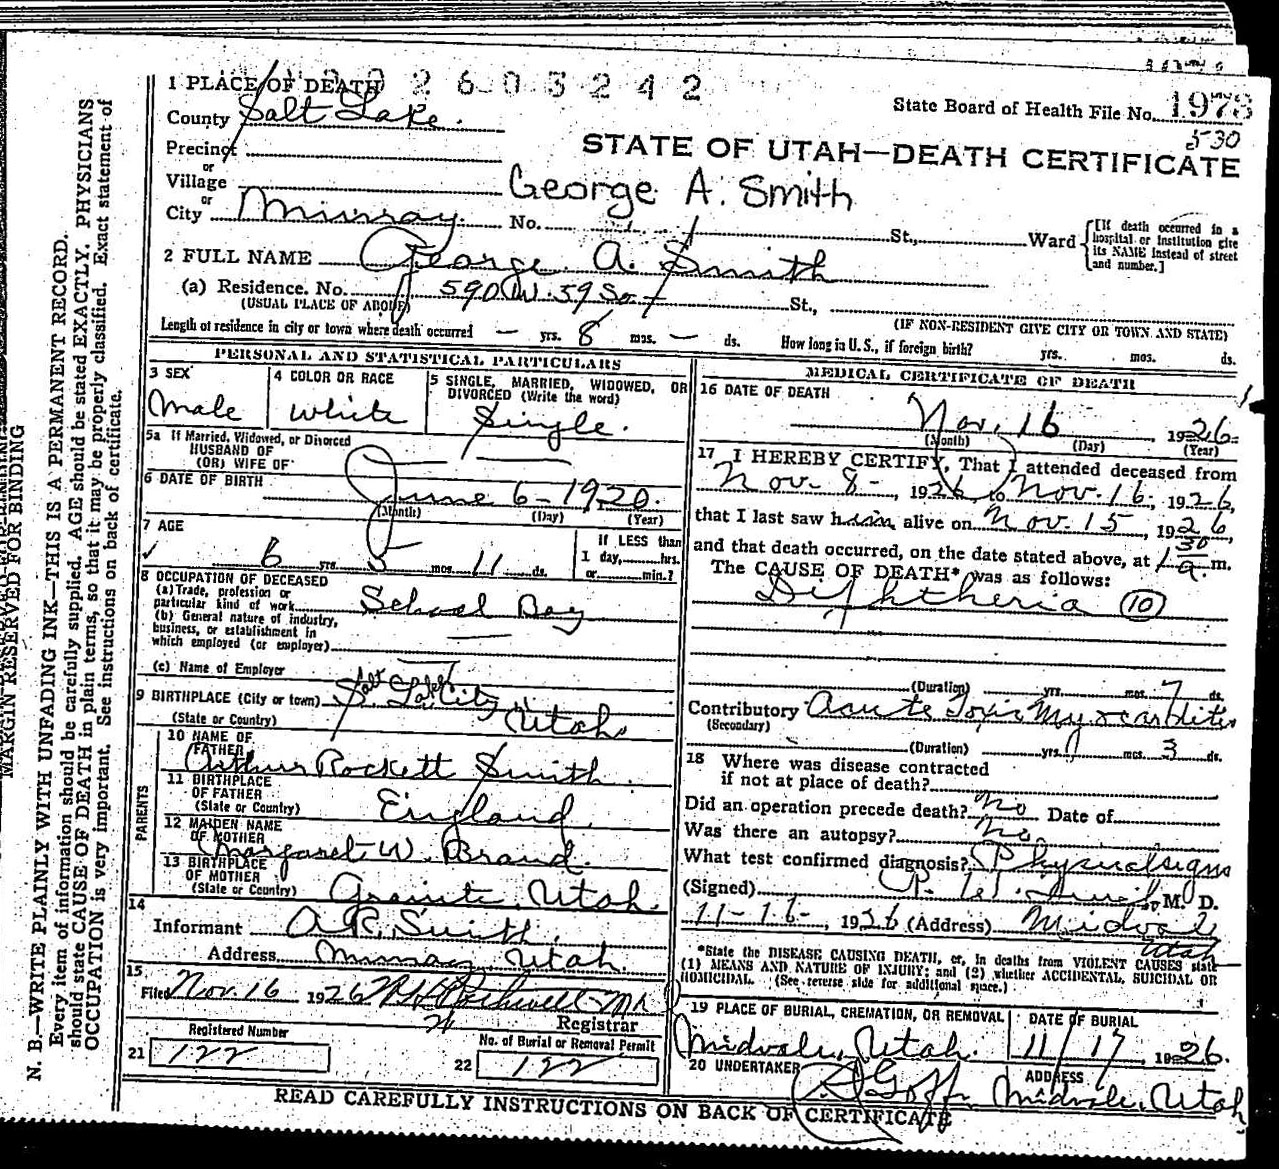 1 PLACE OF DEATH 2 6 0 3 2 4 2
County Salt Lake.
State Board of Health File No. 1978
530
Precinct
or
Village
or
City Murray. No. St., Ward
STATE OF UTAH—DEATH CERTIFICATE
George A. Smith
[If death occurred in a hospital or institution give its NAME instead of street and number.]
2 FULL NAME George A. Smith
(a) Residence. No. 590 W. 59 So. St.,
(USUAL PLACE OF ABODE)
(IF NON-RESIDENT GIVE CITY OR TOWN AND STATE)
Length of residence in city or town where death occurred — yrs. 8 mos. — ds. How long in U. S., if foreign birth? yrs. mos. ds.
PERSONAL AND STATISTICAL PARTICULARS
3 SEX
Male
4 COLOR OR RACE
White
5 SINGLE, MARRIED, WIDOWED, OR DIVORCED (Write the word)
Single.
5a If Married, Widowed, or Divorced
HUSBAND OF
(OR) WIFE OF
6 DATE OF BIRTH June 6 - 1920.
(Month) (Day) (Year)
7 AGE
6 yrs. 5 mos. 11 ds.
If LESS than
1 day,......hrs.
or......min.?
8 OCCUPATION OF DECEASED
(a) Trade, profession or
particular kind of work School Boy
(b) General nature of industry,
business, or establishment in
which employed (or employer)
(c) Name of Employer
9 BIRTHPLACE (City or town) Salt Lake City
(State or Country) Utah
PARENTS
10 NAME OF
FATHER
Arthur Rockett Smith.
11 BIRTHPLACE
OF FATHER
(State or Country) England.
12 MAIDEN NAME
OF MOTHER
Margaret W. Brand.
13 BIRTHPLACE
OF MOTHER
(State or Country) Granite, Utah.
14
Informant A.R. Smith.
Address Murray, Utah.
15
Filed Nov. 16 1926
Registrar
Registered Number
21 122
No. of Burial or Removal Permit
22 122
MEDICAL CERTIFICATE OF DEATH
16 DATE OF DEATH
Nov. 16 1926
(Month) (Day) (Year)
17 I HEREBY CERTIFY, That I attended deceased from
Nov. 8 -, 1926 to Nov. 16, 1926,
that I last saw him alive on Nov. 15, 1926,
and that death occurred, on the date stated above, at 1 30 a. m.
The CAUSE OF DEATH* was as follows:
Diphtheria (10)
(Duration) yrs. mos. 7 ds.
Contributory Acute Toxic Myocarditis
(Secondary)
(Duration) yrs. mos. 3 ds.
18 Where was disease contracted
if not at place of death?
Did an operation precede death? No Date of
Was there an autopsy? No.
What test confirmed diagnosis? Physical signs
(Signed) M. D.
11-16-, 1926 (Address) Midvale
Utah
*State the DISEASE CAUSING DEATH, or, in deaths from VIOLENT CAUSES state
(1) MEANS AND NATURE OF INJURY; and (2) whether ACCIDENTAL, SUICIDAL OR
HOMICIDAL. (See reverse side for additional space.)
19 PLACE OF BURIAL, CREMATION, OR REMOVAL
Midvale, Utah.
DATE OF BURIAL
11/17, 1926.
20 UNDERTAKER Goff
ADDRESS
Midvale, Utah
READ CAREFULLY INSTRUCTIONS ON BACK OF CERTIFICATE
MARGIN RESERVED FOR BINDING
N. B.—WRITE PLAINLY WITH UNFADING INK—THIS IS A PERMANENT RECORD.
Every item of information should be carefully supplied. AGE should be stated EXACTLY. PHYSICIANS
should state CAUSE OF DEATH in plain terms, so that it may be properly classified. Exact statement of
OCCUPATION is very important. See instructions on back of certificate.